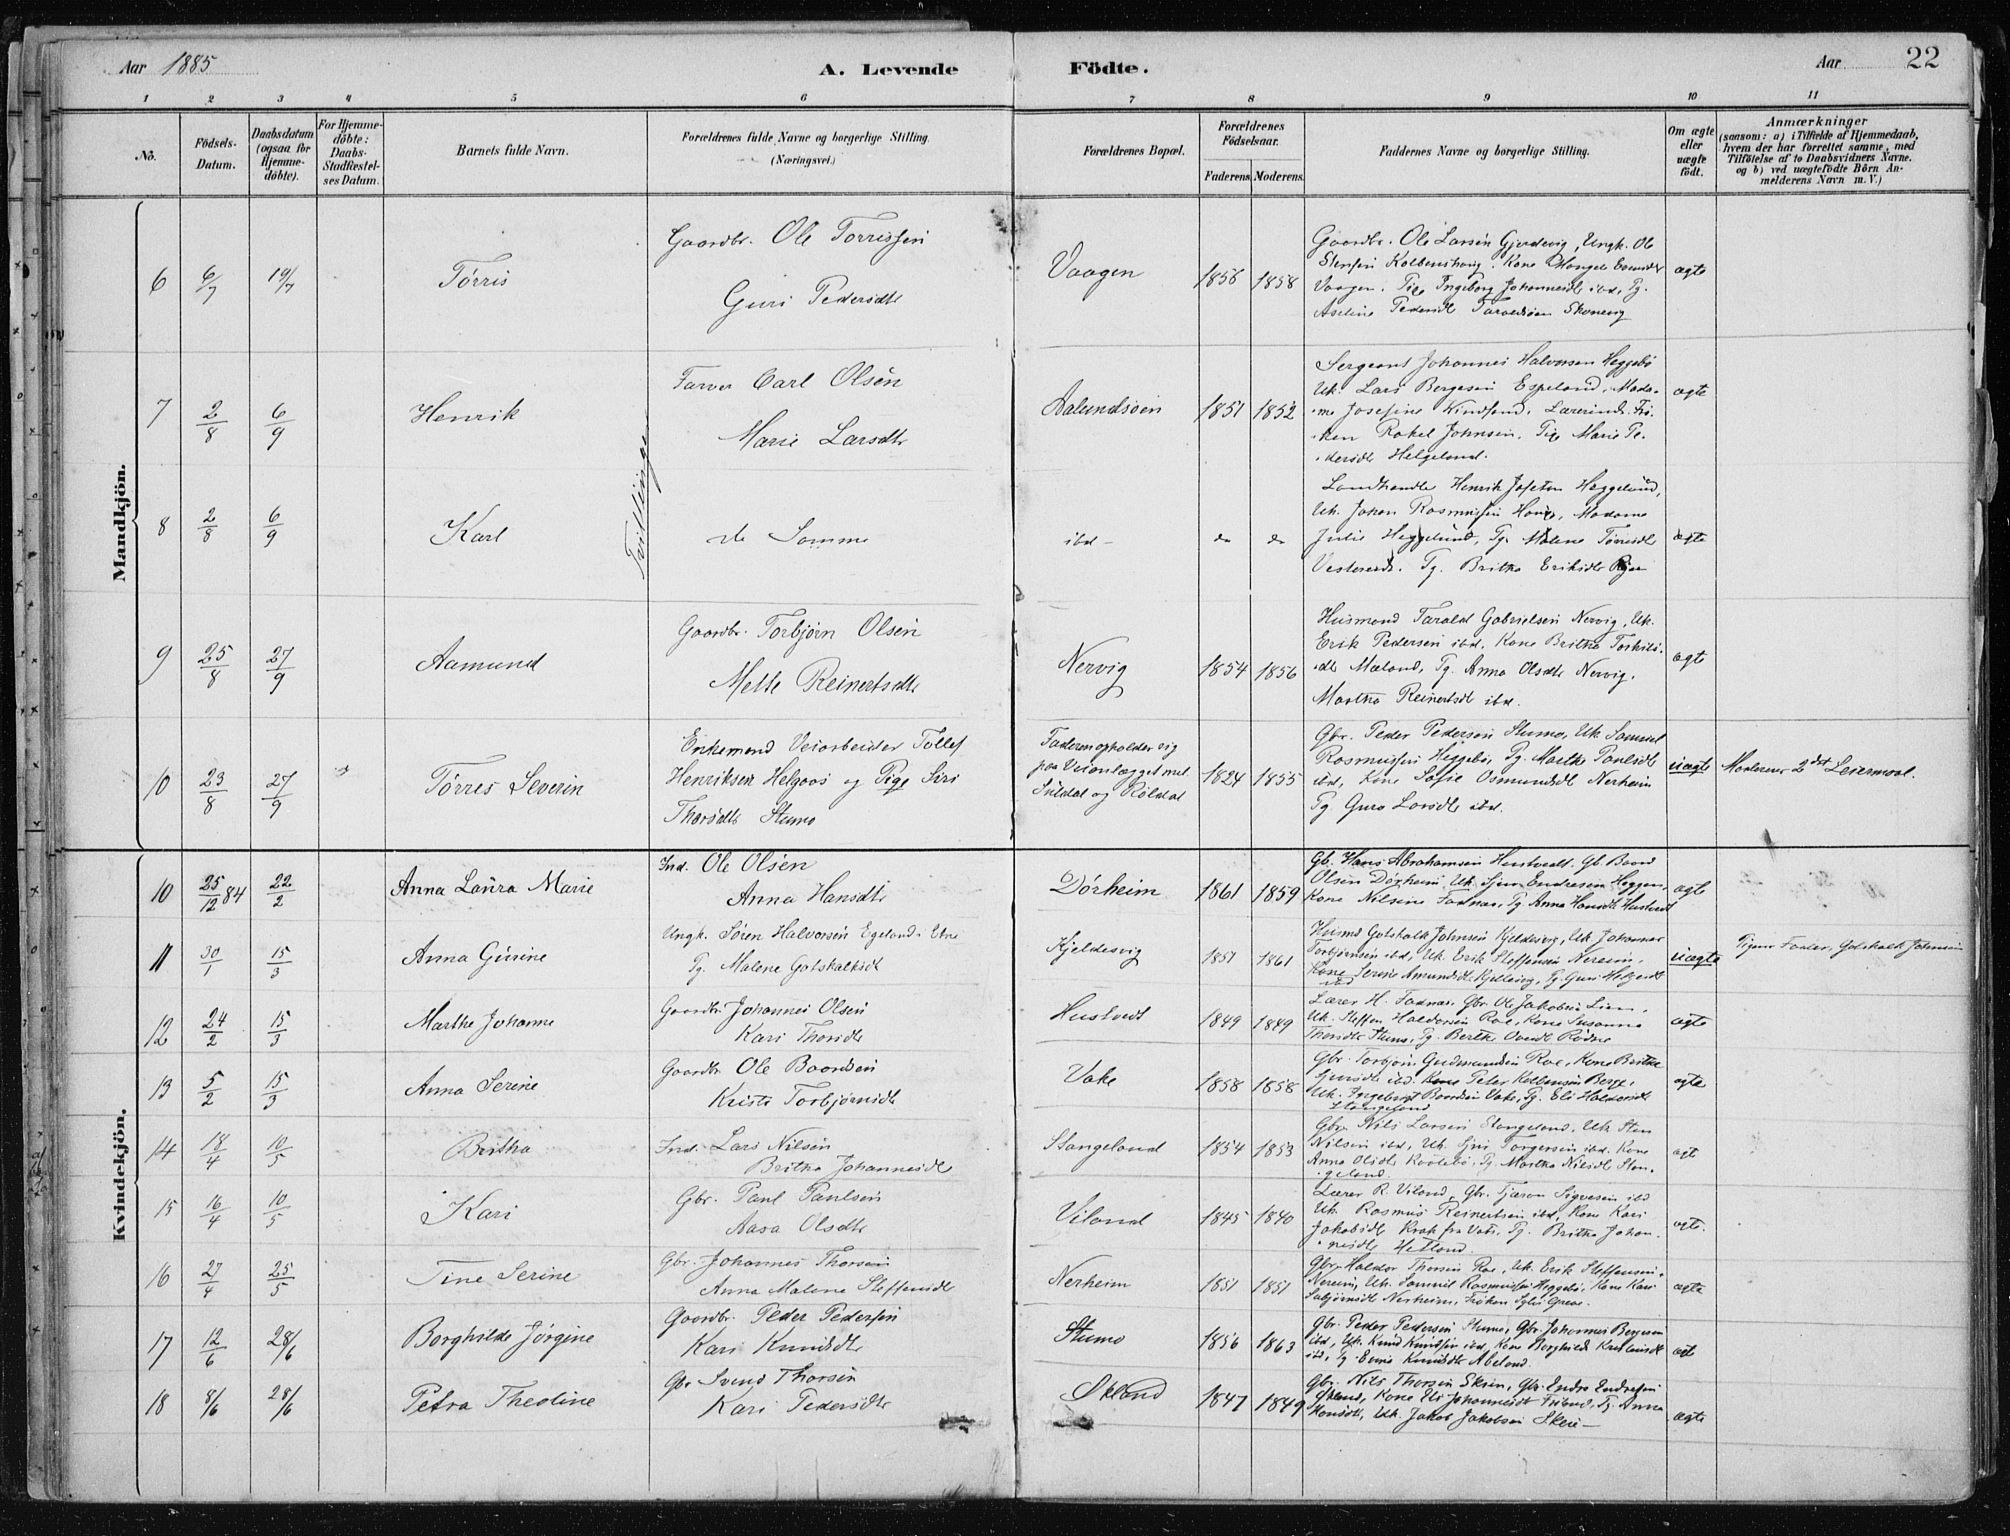 Aar 1885
A. Levende
Födte.
Aar
22
1 2 3 4 5 6 7 8 9 10 11
No.
Födsels-
Datum.
Daabsdatum
(ogsaa for
Hjemme-
döbte).
For Hjemme-
döbte:
Daabs-
Stadfæstel-
ses Datum.
Barnets fulde Navn.
Forældrenes fulde Navne og borgerlige Stilling.
(Næringsvei.)
Forældrenes Bopæl.
Forældrenes
Födselsaar.
Faderens. Moderens.
Faddernes Navne og borgerlige Stilling.
Om ægte
eller
uægte
födt.
Anmærkninger
(saasom: a) i Tilfælde af Hjemmedaab,
hvem der har forrettet samme, med
Tilföielse af to Daabsvidners Navne.
og b) ved uægtefödte Börn An-
melderens Navn m. V.)
Mandkjön.
6 6/7 19/7 Tørris
Gaardbr. Ole Torrissen
Guri Pedersdtr
Vaagen 1856 1858
Gaardbr. Ole Larsen Gjerdevig, Ungk. Ole
Vaagen. Pige Ingeborg Johannesdtr ibd, Pg.
ægte
7 2/8 6/9 Henrik
Farver Carl Olsen
Marie Larsdtr
Tvillinger
Aalundsøen 1851 1852
Sergeant Johannes Halvorsen Heggebø
Uk. Lars Børgesen Espeland, Mada-
me Josefine Knudsen, Lærerinde Frø-
ken Rakel Johnsen. Pige Marie Pe-
dersdtr Helgeland.
ægte
8 2/8 6/9 Karl
de Samme
ibd - do do
Landhandler Henrik Josefsen Heggelund,
Uk. Johan Rasmussen Hauge, Madame
Julie Heggelund, Pg. Malene Tørresdtr
Vestersund. Pg. Britha Eriksdtr
ægte
9 25/8 27/9 Aamund
Gaardbr. Torbjørn Olsen
Mette Reinertsdtr
Nervig 1854 1856
Husmand Tarald Gabrielsen Nervig, Uk.
Erik Pedersen ibd, Kone Britha Torkils-
dtr Mæland, Pg. Anna Olsdtr Nervig,
Martha Reinertsdtr ibd.
ægte
10 23/8 27/9 Tørres Severin
Enkemand Veiarbeider Tollef
Henriksen Helgaas og Pige Siri
Thorsdtr Stumo
Faderen opholder sig
paa Veianlægget mel.
Suldal og Røldal
1824 1855
Gbr. Peder Pedersen Stumo, Uk Samuel
Rasmussen Heggebø, Pg. Marthe Paulsdtr
ibd, Kone Sofie Osmundsdtr Nerheim
Pg. Guro Larsdtr ibd.
uægte
Moderens 2det Leiermaal.
Kvindekjön.
10 25/12 84 22/2 Anna Laura Marie
Ind. Ole Olsen
Anna Hansdtr
Dørheim 1861 1859
Gb. Hans Abrahamsen Hustvedt. Gb. Baard
Olsen Dørheim, Uk. Sjur Endresen Heggen,
Kone Nilsine Fadnæs, Pg. Anna Hansdtr Hustvedt
ægte
11 30/1 15/3 Anna Gurine
Ungk. Søren Halvorsen Egeland i Etne
Pg. Malene Gotskalksdtr
Kjeldesvig 1857 1861
Husmd Gotskalk Johnsen Kjeldesvig, Uk. Johannes
Torbjørnsen ibd, Uk. Erik Steffensen Nereim,
Kone Serine Amundsdtr Kjeldesvig, Pg. Guri
ibd
uægte
Pigens Fader, Gotskalk Johnsen
12 24/2 15/3 Marthe Johanne
Gaardbr. Johannes Olsen
Kari Thorsdtr
Hustvedt 1849 1849
Lærer H. Fadnæs, Gbr. Ole Jakobsen Lien,
Uk. Steffen Haldorsen Roe, Kone Susanna
Thorsdtr Stumo, Pg. Berthe Rødne
ægte
13 5/2 15/3 Anna Serine
Gaardbr Ole Baardsen
Kristi Torbjørnsdtr
Vake 1858 1858
Gbr. Torbjørn Gudmundsen Roe, Kone Britha
ibd. Peter Kolbensen Berge,
Uk. Ingebrigt Baardsen Vake, Pg. Eli Haldorsdtr
Stangeland
ægte
14 18/4 10/5 Britha
Ind. Lars Nilsen
Britha Johannesdtr
Stangeland 1854 1853
Gbr. Nils Larsen Stangeland, Uk Sten
Nilsen ibd, Uk. Torgersen ibd. Kone
Anna Olsdtr Pg. Martha Nilsdtr Stan-
geland
ægte
15 16/4 10/5 Kari
Gbr. Paul Paulsen
Aasa Olsdtr
Viland 1845 1840
Lærer R. Viland, Gbr. Sigvesen ibd
Uk. Rasmus Reinertsen ibd, Kone Kari
Jakobsdtr Krak fra Vats, Pg. Britha Johan-
nesdtr Hetland.
ægte.
16 27/4 25/5 Tine Serine
Gbr. Johannes Thorsen
Anna Malene Steffensdtr
Nerheim 1851 1851
Gbr. Haldor Thorsen Roe, Uk. Erik Steffensen
Nereim, Uk. Samuel Rasmussen Heggebø, Kone Kari
Nerheim, Frøken
ægte
17 12/6 28/6 Borghilde Jørgine
Gaardbr. Peder Pedersen
Kari Knudsdtr
Stumo 1856 1863
Gbr. Peder Pedersen Stumo, Gbr. Johannes Børgesen
ibd, Uk. Knud Knudsen ibd, Kone Borghilde
ibd, Pg. Knudsdtr Abeland.
ægte
18 8/6 28/6 Petra Theoline
Gbr Svend Thorsen
Kari Pedersdtr
Økland 1847 1849
Gbr. Nils Thorsen Skeie, Gbr. Endre Endresen
Økland, Kone Eli Johannesdtr Pg. Anna
Hansdtr, Uk. Jakob Jakobsen Skeie -
ægte